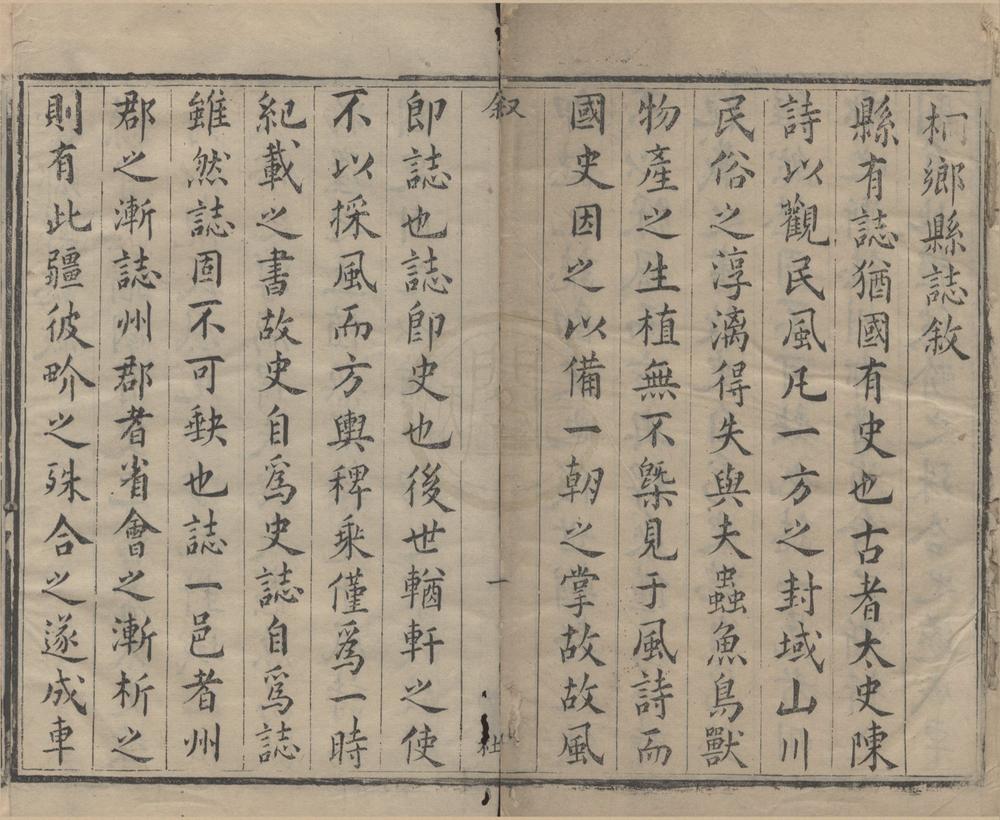 桐鄉縣誌敘
縣有誌猶國有史也古者太史陳
詩以觀民風凡一方之封域山川
民俗之淳漓得失與夫蟲魚鳥獸
物產之生植無不槩見于風詩而
國史因之以備一朝之掌故故風
叙
一
即誌也誌即史也後世輶軒之使
不以採風而方輿稗乘僅爲一時
紀載之書故史自爲史誌自爲誌
雖然誌固不可缺也誌一邑者州
郡之漸誌州郡者省會之漸析之
則有此疆彼畍之殊合之遂成車